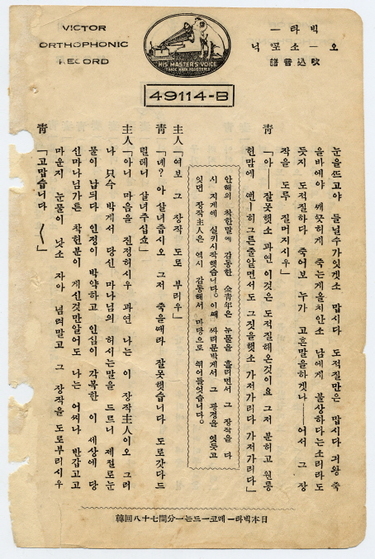 VICTOR
ORTHOPHONIC
RECORD
HIS MASTER'S VOICE
吹込音譜
49114-B
눈을뜨고야 들닐수가잇겟소 맙시다 도적질만은 맙시다 겨왕 죽
을바에야 깨끗하게 죽는게올치안소 남에게 불상하다는소리라도
듯지 도적질하다 죽어보 누가 고흔말을하겟나――어서 그 장
작을 도루 질머지시우」
靑 「아――잘못햇소 과연 이것은 도적질해온것이요 그저 분하고 원통
한맘에 앤――히그른줄알면서도 그짓을햇소 가저가리다 가저가리다」
안해의 착한말에 감동한 金靑年은 눈물을 흘리면서 그 장작을 다
시 지게에 실키시작했습니다. 이때 싸리문박게서 그 광경을 엿듯고
잇던 장작主人은 역시 감동해서 마당으로 뛰어들엇습니다.
主人 「여보 그 장작 도로 부리우」
靑 「녜? 아 살녀줍시오 그저 죽을때라 잘못햇습니다 도로갓다드
릴테니 살녀주십쇼」
主人 「아니 마음을 진정하시우 과연 나는 이 장작主人이오 그러
나 只今 박게서 당신 마나님의 하시는말을 드르니 제절로눈
물이 납듸다 인정이 박약하고 인심이 각목한 이 세상에 당
신마나님가튼 착한분이 게신것만알어도 나는 어찌나 반갑고고
마운지 눈물이 낫소 자아 념려말고 그 장작을 도로부리시우
靑 「고맙습니다
日本빅타—레코—드는一分間七十八回轉